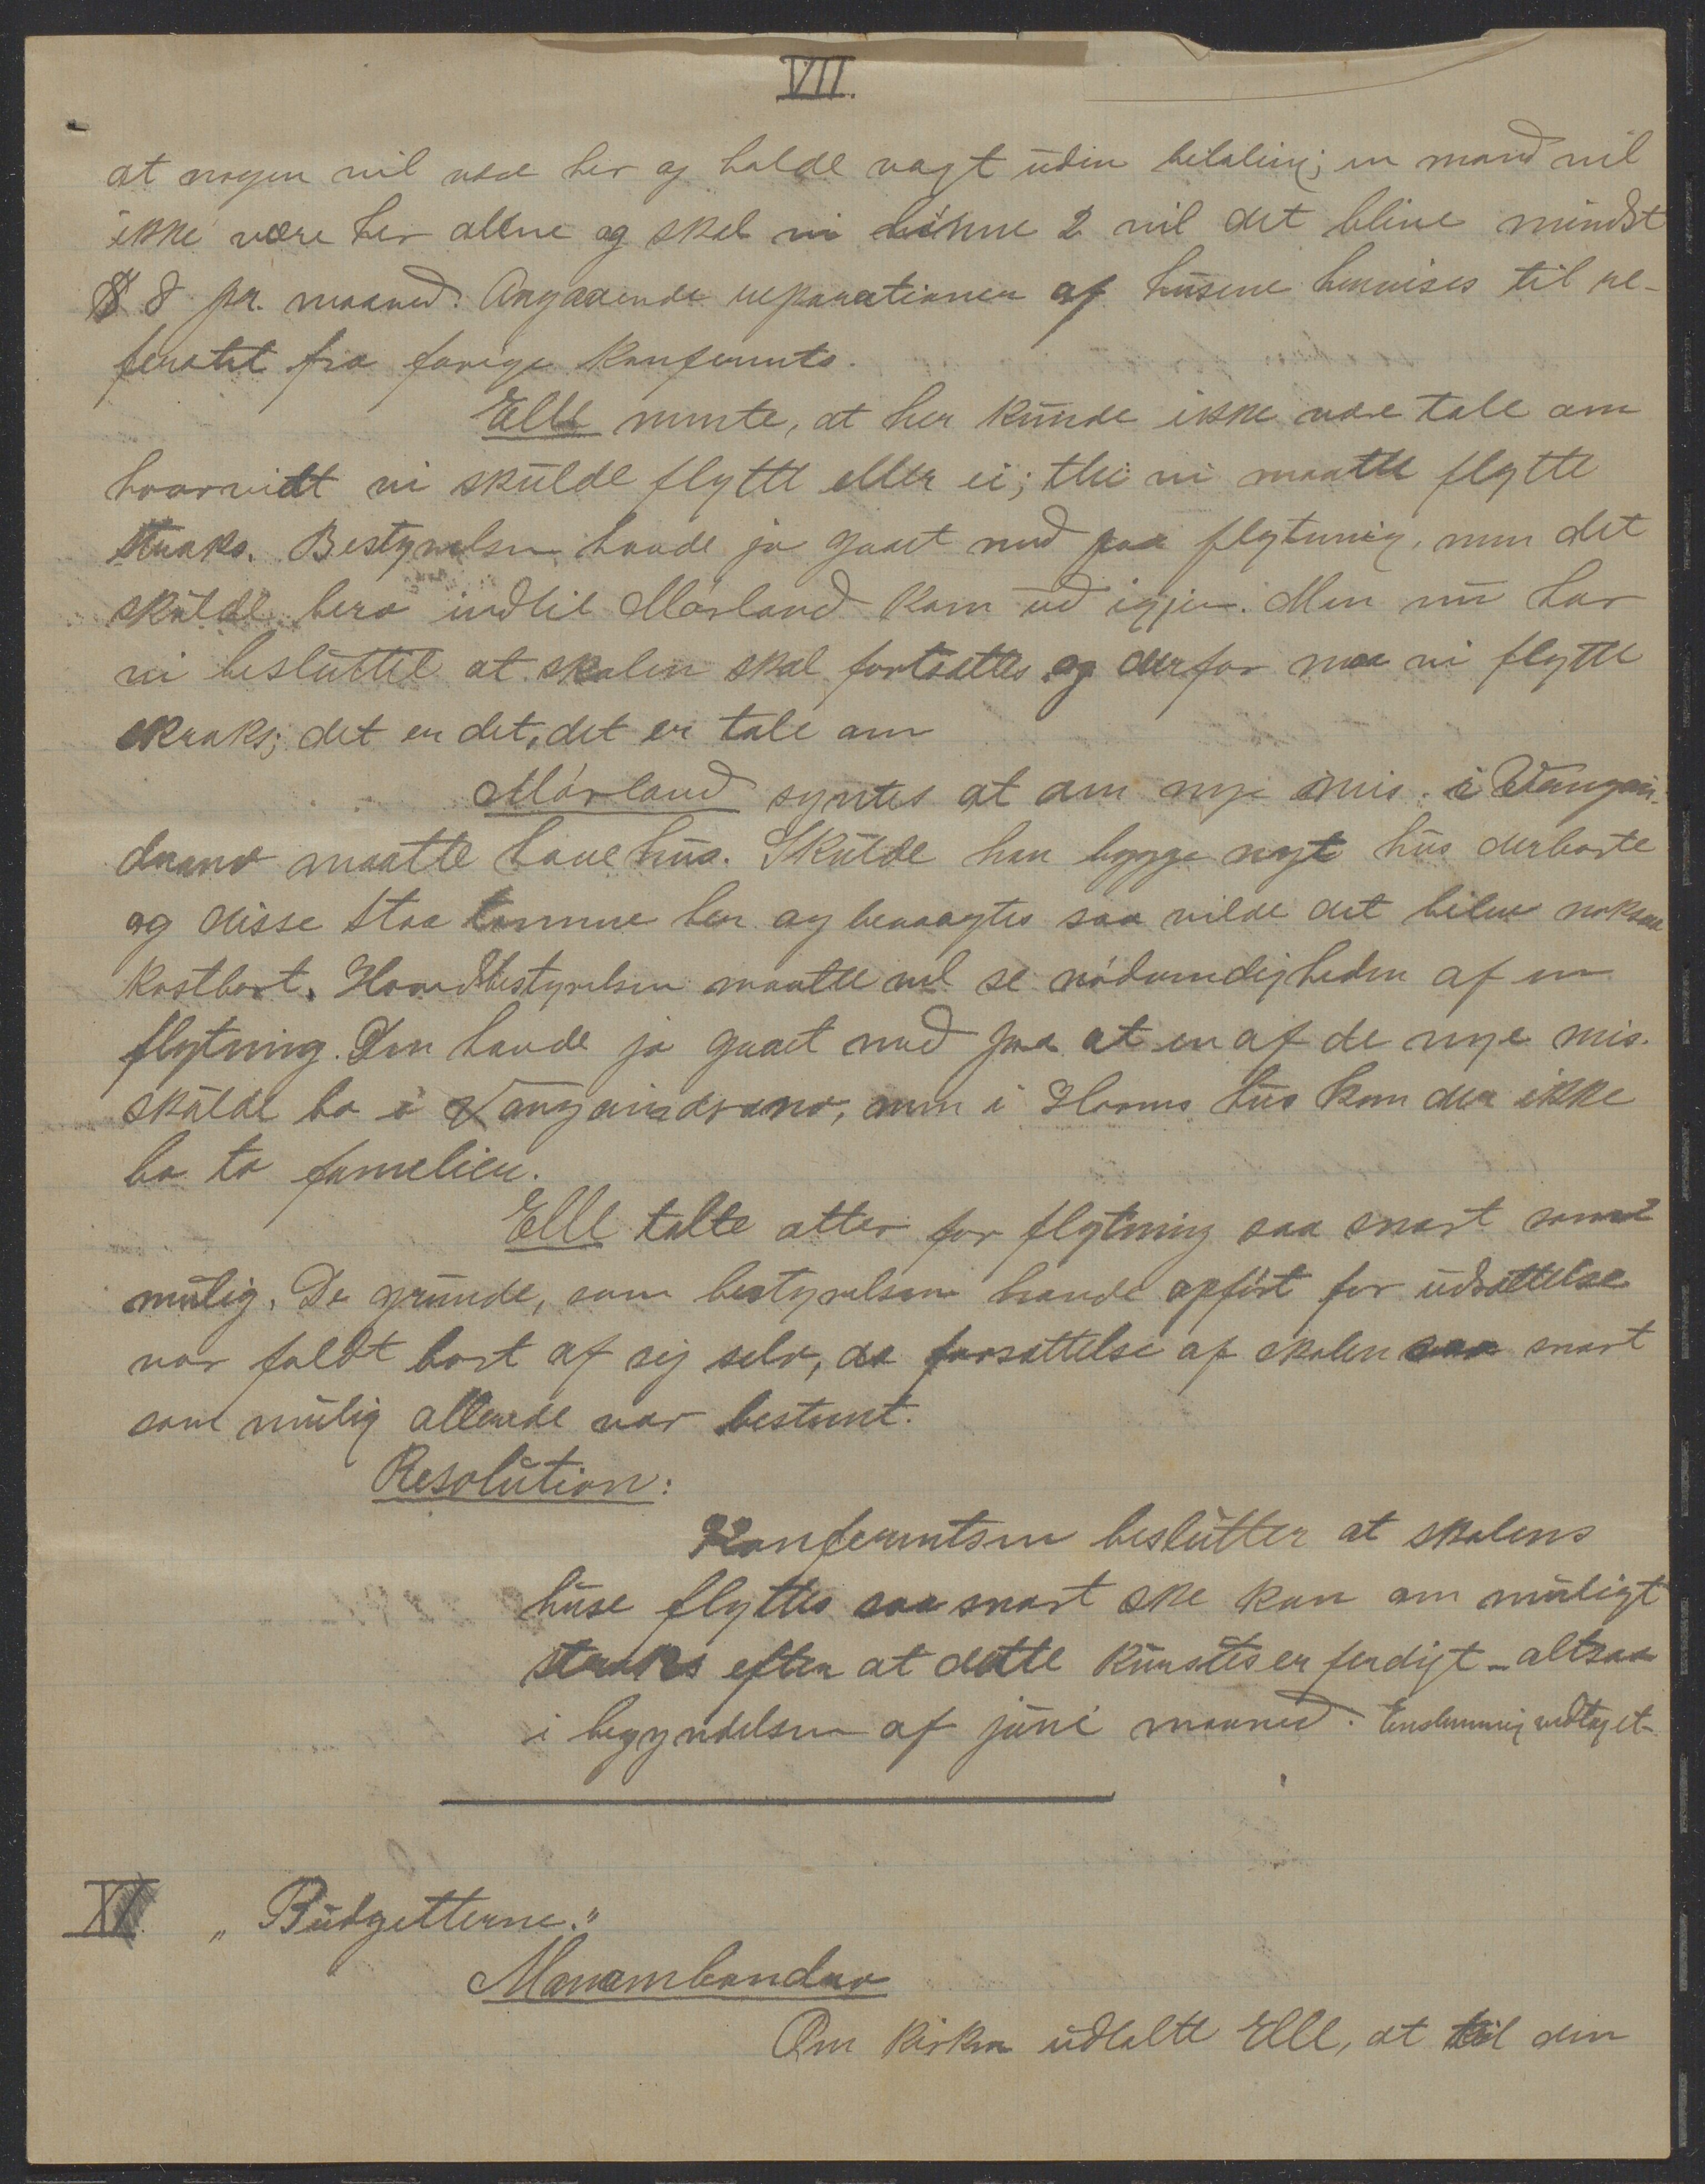 VII.
at nogen vil være her og holde vagt uden betaling; en mand vil
ikke være her allene og skal vi lönne 2 vil det blive mindst
$ 8 pr. maaned. Angaaende reparationen af husene henvises til re-
feratet fra forige konferents.
Elle mente, at her kunde ikke være tale om
hvorvidt vi skulde flytte eller ei; thi vi maatte flytte
straks. Bestyrelsen havde jo gaaet med paa flytning, men det
skulde bero indtil Mörland kom ud igjen. Men nu har
vi besluttet at skolen skal fortsættes og derfor maa vi flytte
straks; det er det, det er tale om
Mörland syntes at om nye mis. i Vangain-
drano maatte have hus. Skulde han bygge nyt hus derborte
og disse staa tomme her og bevogtes saa vilde det blive noksaa
kostbart. Hovedbestyrelsen maatte vel se nödvendigheden af en
flytning. Den havde jo gaaet med paa at en af de nye mis.
skulde bo i Vangaindrano, men i Horns hus kan der ikke
bo to familier.
Elle talte atter for flytning saa snart som
mulig. De grunde, som bestyrelsen havde opfört for udsættelse
var faldt bort af sig selv, da forsættelse af skolen saa snart
som mulig allerede var bestemt.
Resolution:
Konferentsen beslutter at skolens
huse flyttes saa snart ske kan om muligt
straks efter at dette kursus er ferdigt - altsaa
i begyndelsen af juni maaned. Enstemmig vedtaget
XI. „Budgetterne."
Manambondro
Om kirken udtalte Elle, at til den